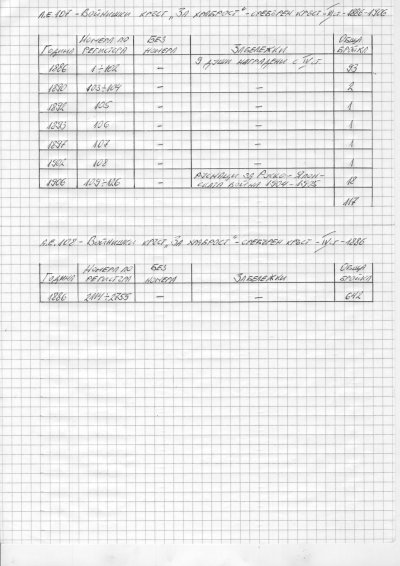 А.Е. 107 - Войнишки кръст „За храброст" - сребърен кръст - III ст - 1886-1906
Година Номера по регистъра Без номера Забележки Обща бройка
1886 1÷102 - 9 души наградени с IV ст 93
1890 103÷104 - - 2
1892 105 - - 1
1893 106 - - 1
1897 107 - - 1
1902 108 - - 1
1906 109÷126 - за Руско-Япон-ската война 1904-1905 18
117
А.Е. 108 - Войнишки кръст „За храброст" - сребърен кръст - IV ст - 1886
Година Номера по регистъра Без номера Забележки Обща бройка
1886 2114÷2755 - - 642